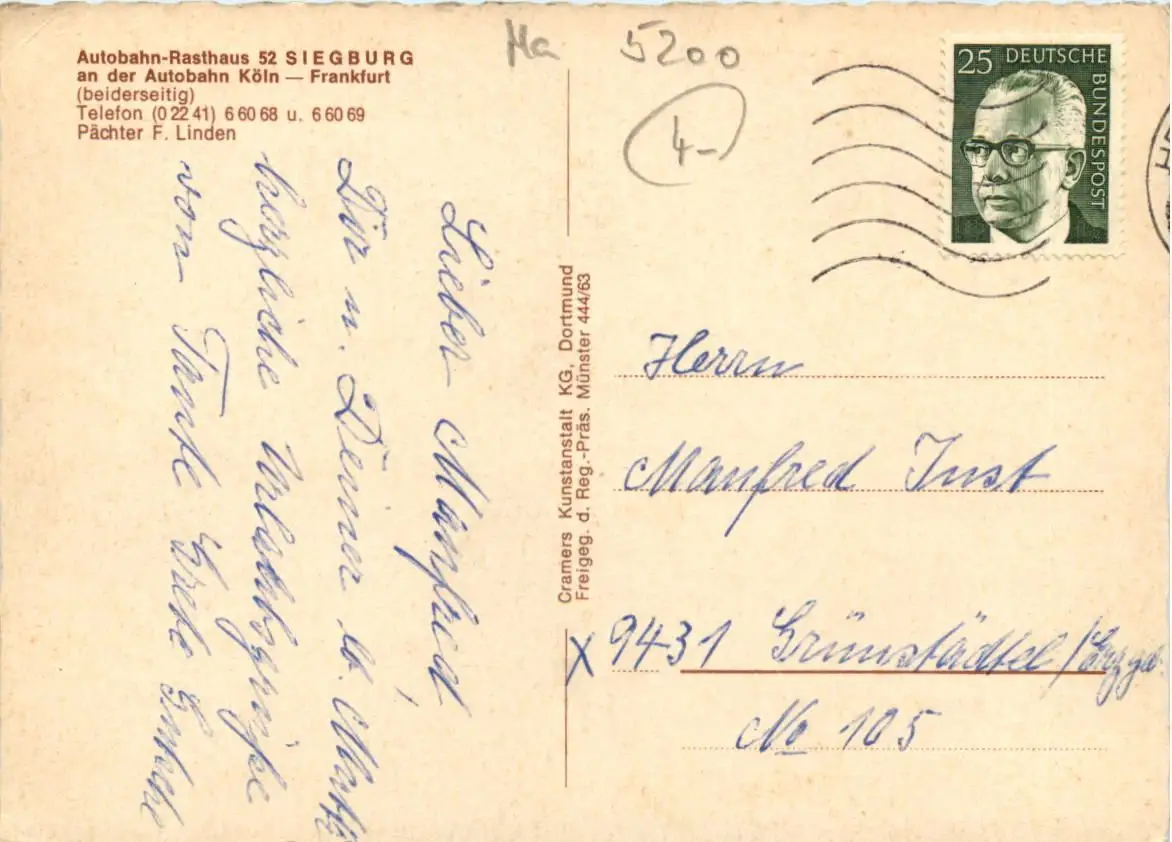 Autobahn-Rasthaus 52 SIEGBURG
an der Autobahn Köln — Frankfurt
(beiderseitig)
Telefon (0 22 41) 6 60 68 u. 6 60 69
Pächter F. Linden
Ma 5200
4-
25 DEUTSCHE
BUNDESPOST
Lieber Manfred,
Dir u. Deiner lb. Mutti
herzliche Urlaubsgrüße
von Tante Grete
Cramers Kunstanstalt KG, Dortmund
Freigeg. d. Reg.-Präs. Münster 444/63
Herrn
Manfred Just
x 9431 Grünstädtel/Erzgeb.
No 105